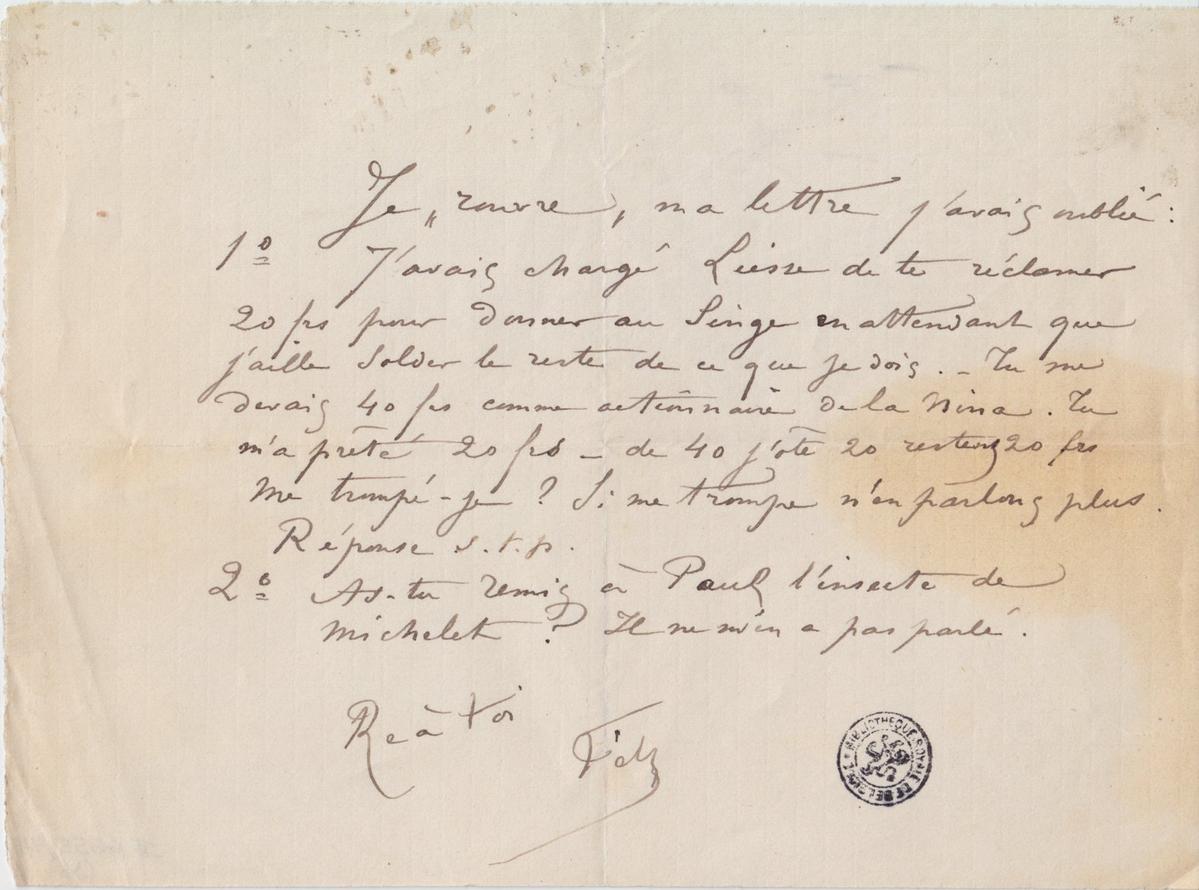 Je „rouvre„ ma lettre j'avais oublié :
1º J'avais chargé Liesse de te réclamer
20 frs pour donner au Singe en attendant que
j'aille solder le reste de ce que je dois. _ Tu me
devais 40 frs comme actionnaire de la Nina. Tu
m'a prêté 20 frs _ de 40 j'ôte 20 restent 20 frs
me trompé-je ? Si me trompe n'en parlons plus.
Réponse s.t.p.
2º As-tu remis à Paul l'insecte de
Michelet ? Il ne m'en a pas parlé.
Re à toi
BIBLIOTHEQUE ROYALE DE BELGIQUE